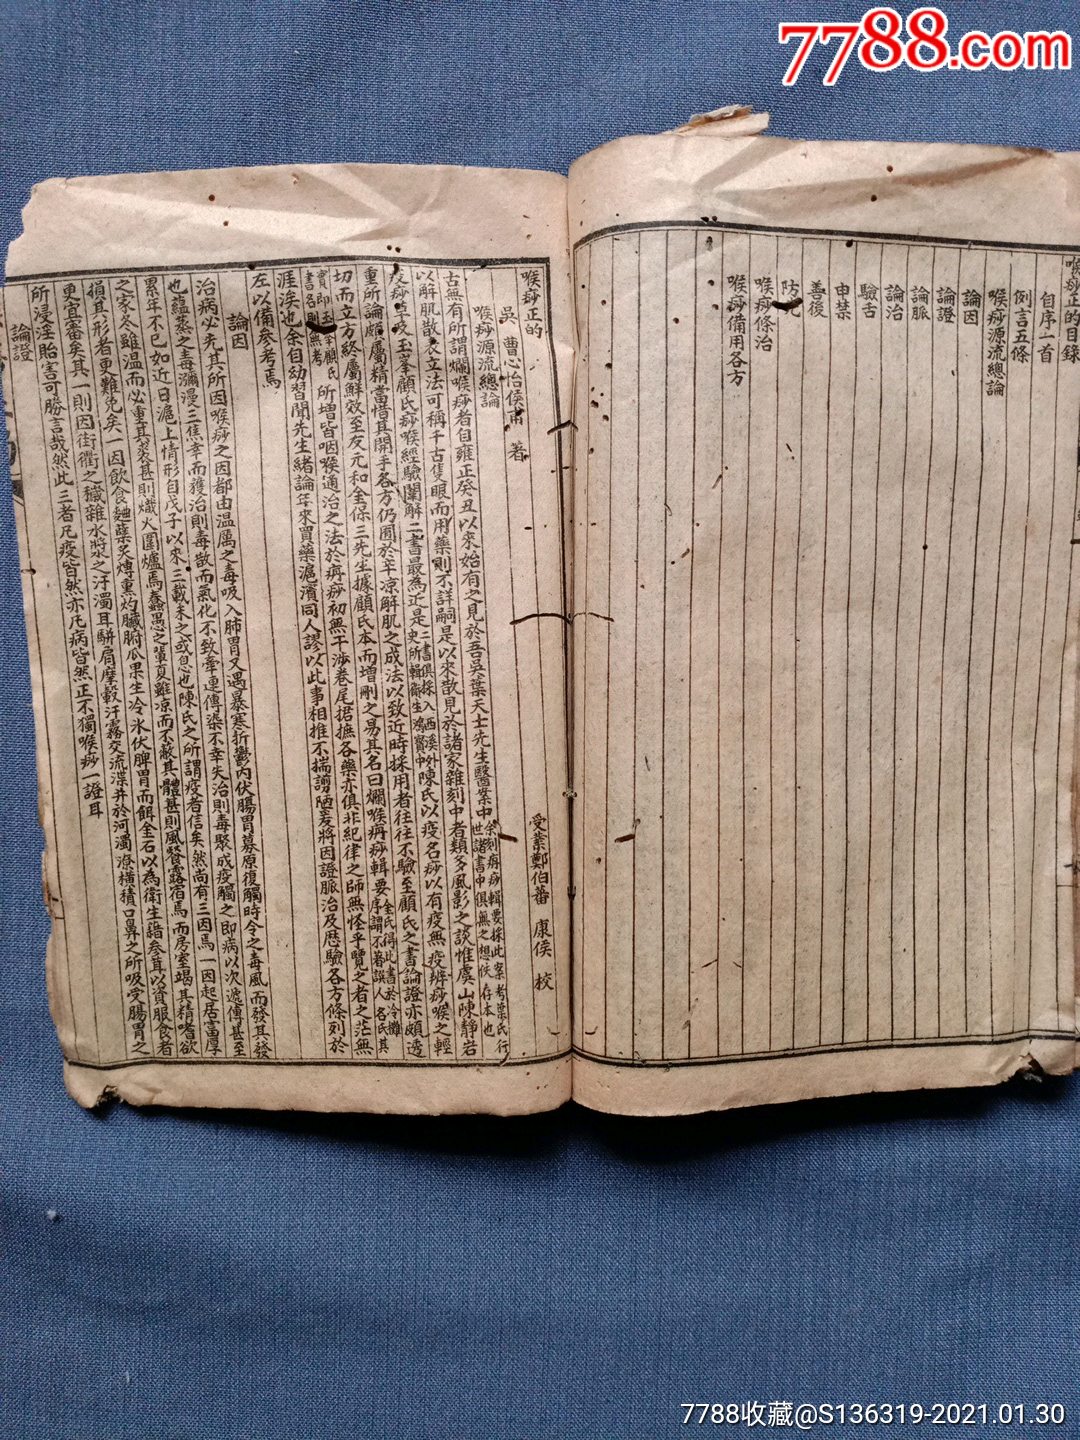 7788.com
喉痧正的目錄
自序一首
例言五條
喉痧源流總論
論因
論證
論脈
論治
驗舌
申禁
善後
防
喉痧條治
喉痧備用各方
喉痧正的
吳 曹心怡侯甫 著 受業鄭伯蕃 康侯 校
喉痧源流總論
古無有所謂爛喉痧者自雍正癸丑以來始有之見於吾吳葉天士先生醫案中余刻痧輯要採此案考葉氏行世諸書中俱無之想佚存本也
以解肌散表立法可稱千古隻眼而用藥則不詳嗣是以來散見於諸家雜刻中者類多風影之談惟虞山陳靜岩
疫痧草岐玉峯顧氏痧喉經驗闡解二書最為近是二書俱採入西溪外史所輯衛生鴻寶中陳氏以疫名痧以有疫無疫辨痧喉之輕
重所論頗屬精當惜其開手各方仍囿於辛凉解肌之成法以致近時採用者往往不驗至顧氏之書論證亦頗透
切而立方終屬鮮效至友元和金保三先生據顧氏本而增刪之易其名曰爛喉痧輯要金氏得此書於冷攤序謂不著譔人名氏其
實即玉峯顧氏書各則無考所增皆咽喉通治之法於痧初無干涉卷尾捃摭各藥亦俱非紀律之師無怪乎覽之者之茫無
涯涘也余自幼習聞先生緒論年來買藥滬濱同人謬以此事相推不揣謭陋爰將因證脈治及歷驗各方條列於
左以備參考焉
論因
治病必先其所因喉痧之因都由溫厲之毒吸入肺胃又遇暴寒折鬱內伏腸胃募原復觸時令之毒風而發其發
也蘊蒸之毒瀰漫三焦幸而獲治則毒散而氣化不致牽連傳染不幸失治則毒聚成疫觸之即病以次遞傳甚至
累年不已如近日滬上情形自戊子以來三載未之或息也陳氏之所謂疫者信矣然尚有三因焉一因起居富厚
之家冬雖溫而必重其裘甚則熾火圍爐焉蠢愚之輩夏雖凉而不蔽其體甚則風餐露宿焉而房室竭其精嗜欲
損其形者更難免矣一因飲食麯蘖炙煿熏灼臟腑瓜果生冷氷伏脾胃而餌金石以為衛生諳參茸以資服食者
更宜審矣其一則因街衢之穢雜水漿之汙濁耳駢肩摩轂汗霧交流渫井於河濁潦橫積口鼻之所吸受腸胃之
所浸淫貽害可勝言哉然此三者凡疫皆然亦凡病皆然正不獨喉痧一證耳
論證
7788收藏@S136319-2021.01.30